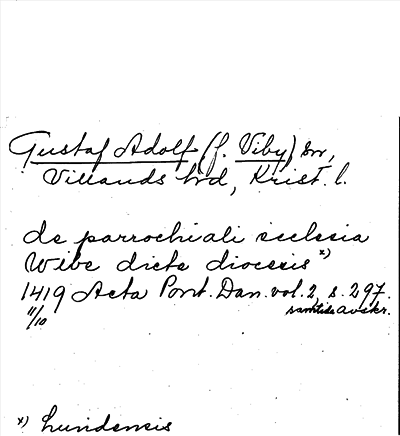 Gustaf Adolf (f. Viby) sn,
Villands hd, Krist. l.
de parrochiali ecclesia
Wibe dicte diocesis x)
1419 Acta Pont. Dan. vol. 2, s. 297.
11/10 samtida avskr.
x) Lundensis